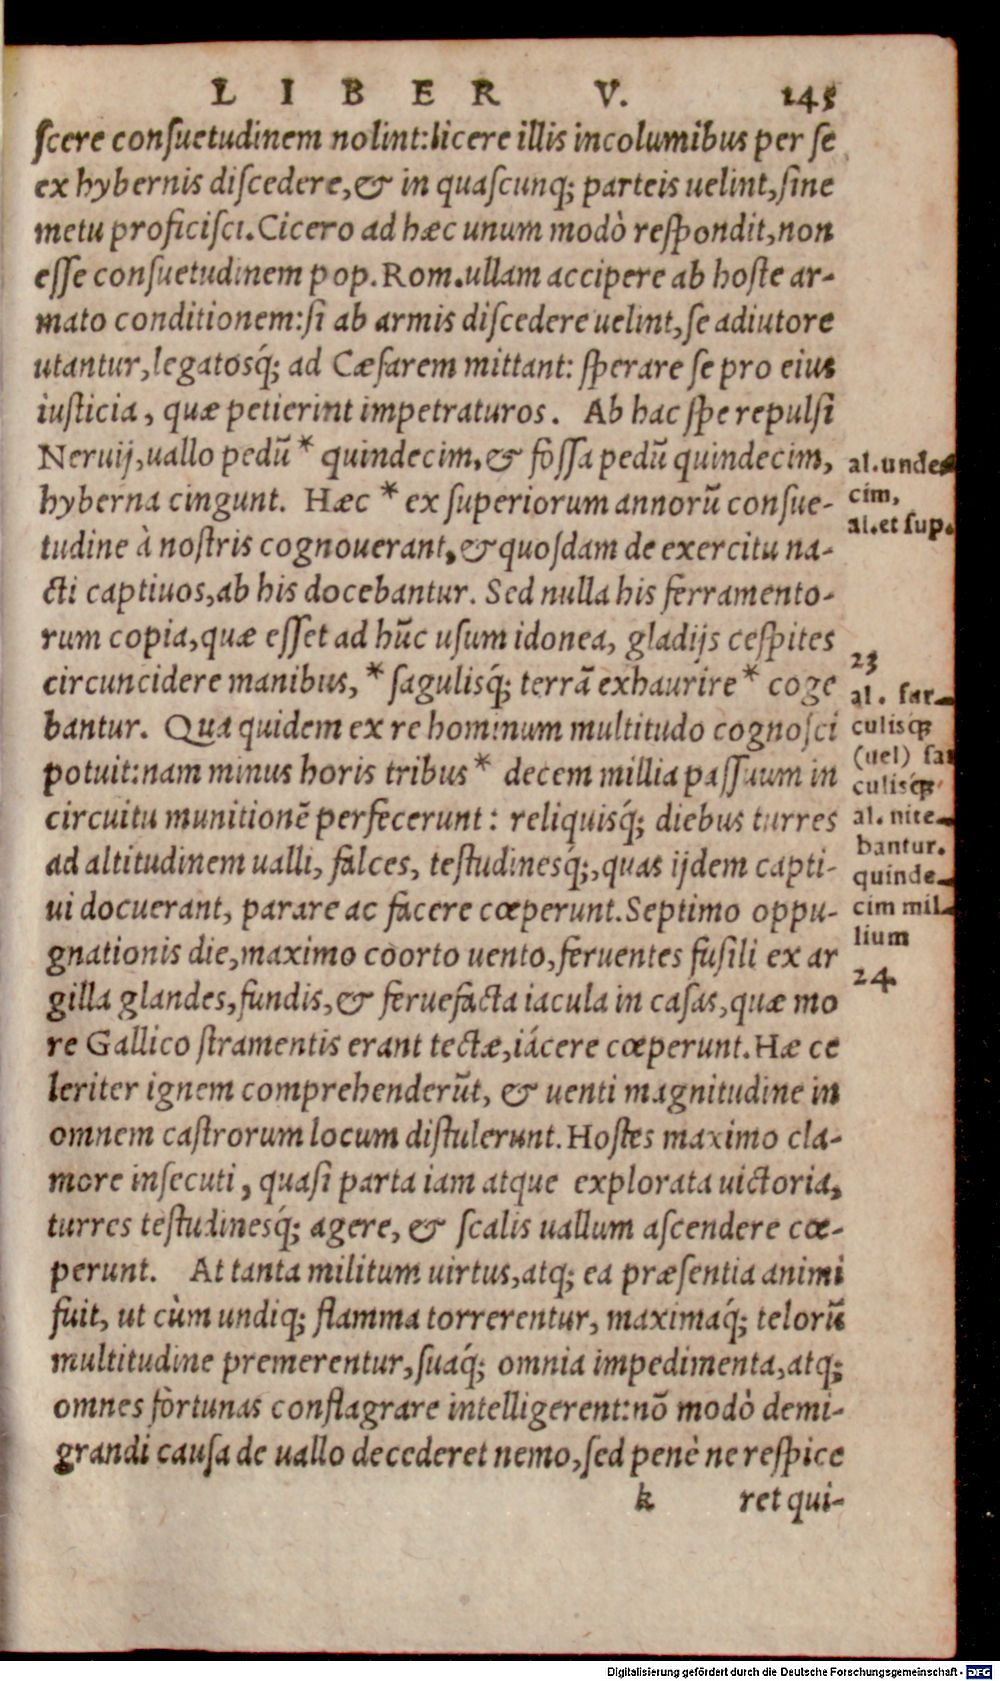 LIBER V. 145
ſcere conſuetudinem nolint:licere illis incolumibus per ſe
ex hybernis diſcedere,& in quaſcunq; parteis uelint,ſine
metu proficiſci.Cicero ad hæc unum modò reſpondit,non
eſſe conſuetudinem pop.Rom.ullam accipere ab hoſte ar-
mato conditionem:ſi ab armis diſcedere uelint,ſe adiutore
utantur,legatosq́; ad Cæſarem mittant: ſperare ſe pro eius
iuſticia, quæ petierint impetraturos. Ab hac ſpe repulſi
Neruij,uallo pedũ * quindecim,& foſſa pedũ quindecim,
hyberna cingunt. Hæc * ex ſuperiorum annorũ conſue-
tudine à noſtris cognouerant,& quoſdam de exercitu na-
cti captiuos,ab his docebantur. Sed nulla his ferramento-
rum copia,quæ eſſet ad hũc uſum idonea, gladijs ceſpites
circuncidere manibus, * ſagulisq́; terrã exhaurire * coge
bantur. Qua quidem ex re hominum multitudo cognoſci
potuit:nam minus horis tribus * decem millia paſſuum in
circuitu munitionẽ perfecerunt: reliquisq́; diebus turres
ad altitudinem ualli, falces, teſtudinesq́;,quas ijdem capti-
ui docuerant, parare ac facere cœperunt.Septimo oppu-
gnationis die,maximo coorto uento,feruentes fuſili ex ar
gilla glandes,fundis,& feruefacta iacula in caſas,quæ mo
re Gallico ſtramentis erant tectæ,iácere cœperunt.Hæ ce
leriter ignem comprehenderũt, & uenti magnitudine in
omnem caſtrorum locum diſtulerunt.Hoſtes maximo cla-
more inſecuti, quaſi parta iam atque explorata uictoria,
turres teſtudinesq́; agere, & ſcalis uallum aſcendere cœ-
perunt. At tanta militum uirtus,atq; ea præſentia animi
fuit, ut cùm undiq; flamma torrerentur, maximaq́; telorũ
multitudine premerentur,ſuaq́; omnia impedimenta,atq;
omnes fortunas conflagrare intelligerent:nõ modò demi-
grandi cauſa de uallo decederet nemo,ſed penè ne reſpice
k ret qui-
al.unde-
cim,
al.et ſup.
23
al. ſar-
culisq́;
(uel) fal
culisq́;
al. nite-
bantur.
quinde-
cim mil-
lium
24
Digitalisierung gefördert durch die Deutsche Forschungsgemeinschaft - DFG